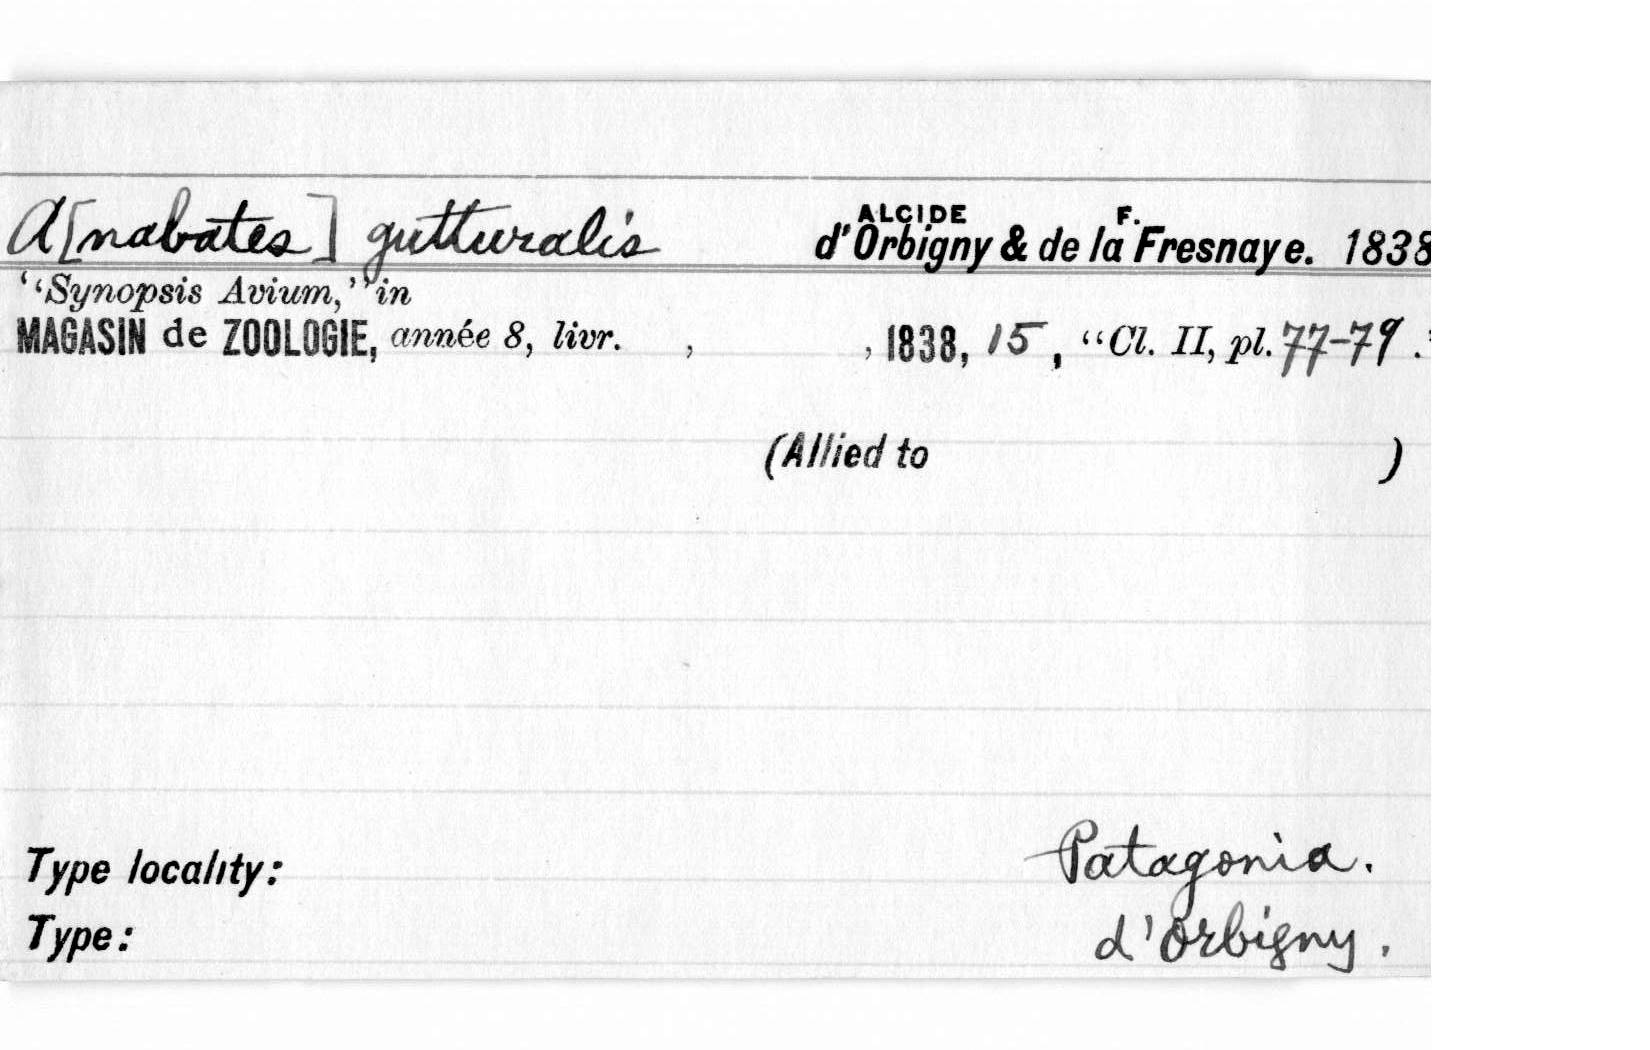 A[nabates] gutturalis ALCIDE d'Orbigny & de la F. Fresnaye. 1838
“Synopsis Avium,” in
MAGASIN de ZOOLOGIE, année 8, livr. , , 1838, 15, “Cl. II, pl. 77-79.”
(Allied to )
Type locality: Patagonia.
Type: d'Orbigny.